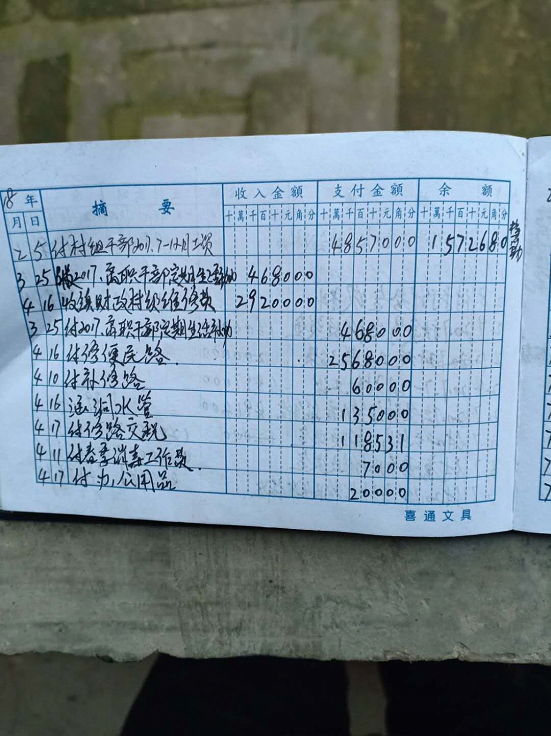 8 年 摘 要 收入金额 支付金额 余 额
月 日 十萬千百十元角分 十萬千百十元角分 十萬千百十元角分
2 5 付村组干部2017.7-12月工资 4857000 1572680
3 25 收2017.离职干部定期生活补助 468000
4 16 收镇财政村级维修款 2920000
3 25 付2017.离职干部定期生活补助 468000
4 16 付修便民路. 2568000
4 10 付补修路 60000
4 16 涵洞水管 135000
4 17 付修路交税 118531
4 11 付春季消毒工作款. 7000
4 17 付办公用品 20000
喜通文具